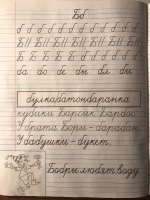 Бб
б б б б б б б б б
Б Б Б Б Б Б Б
да бо бе бы бл би
булка батон баранка
кубики Барсик Барбос
У брата Бори - барабан.
У бабушки - букет.
Бобры любят воду.